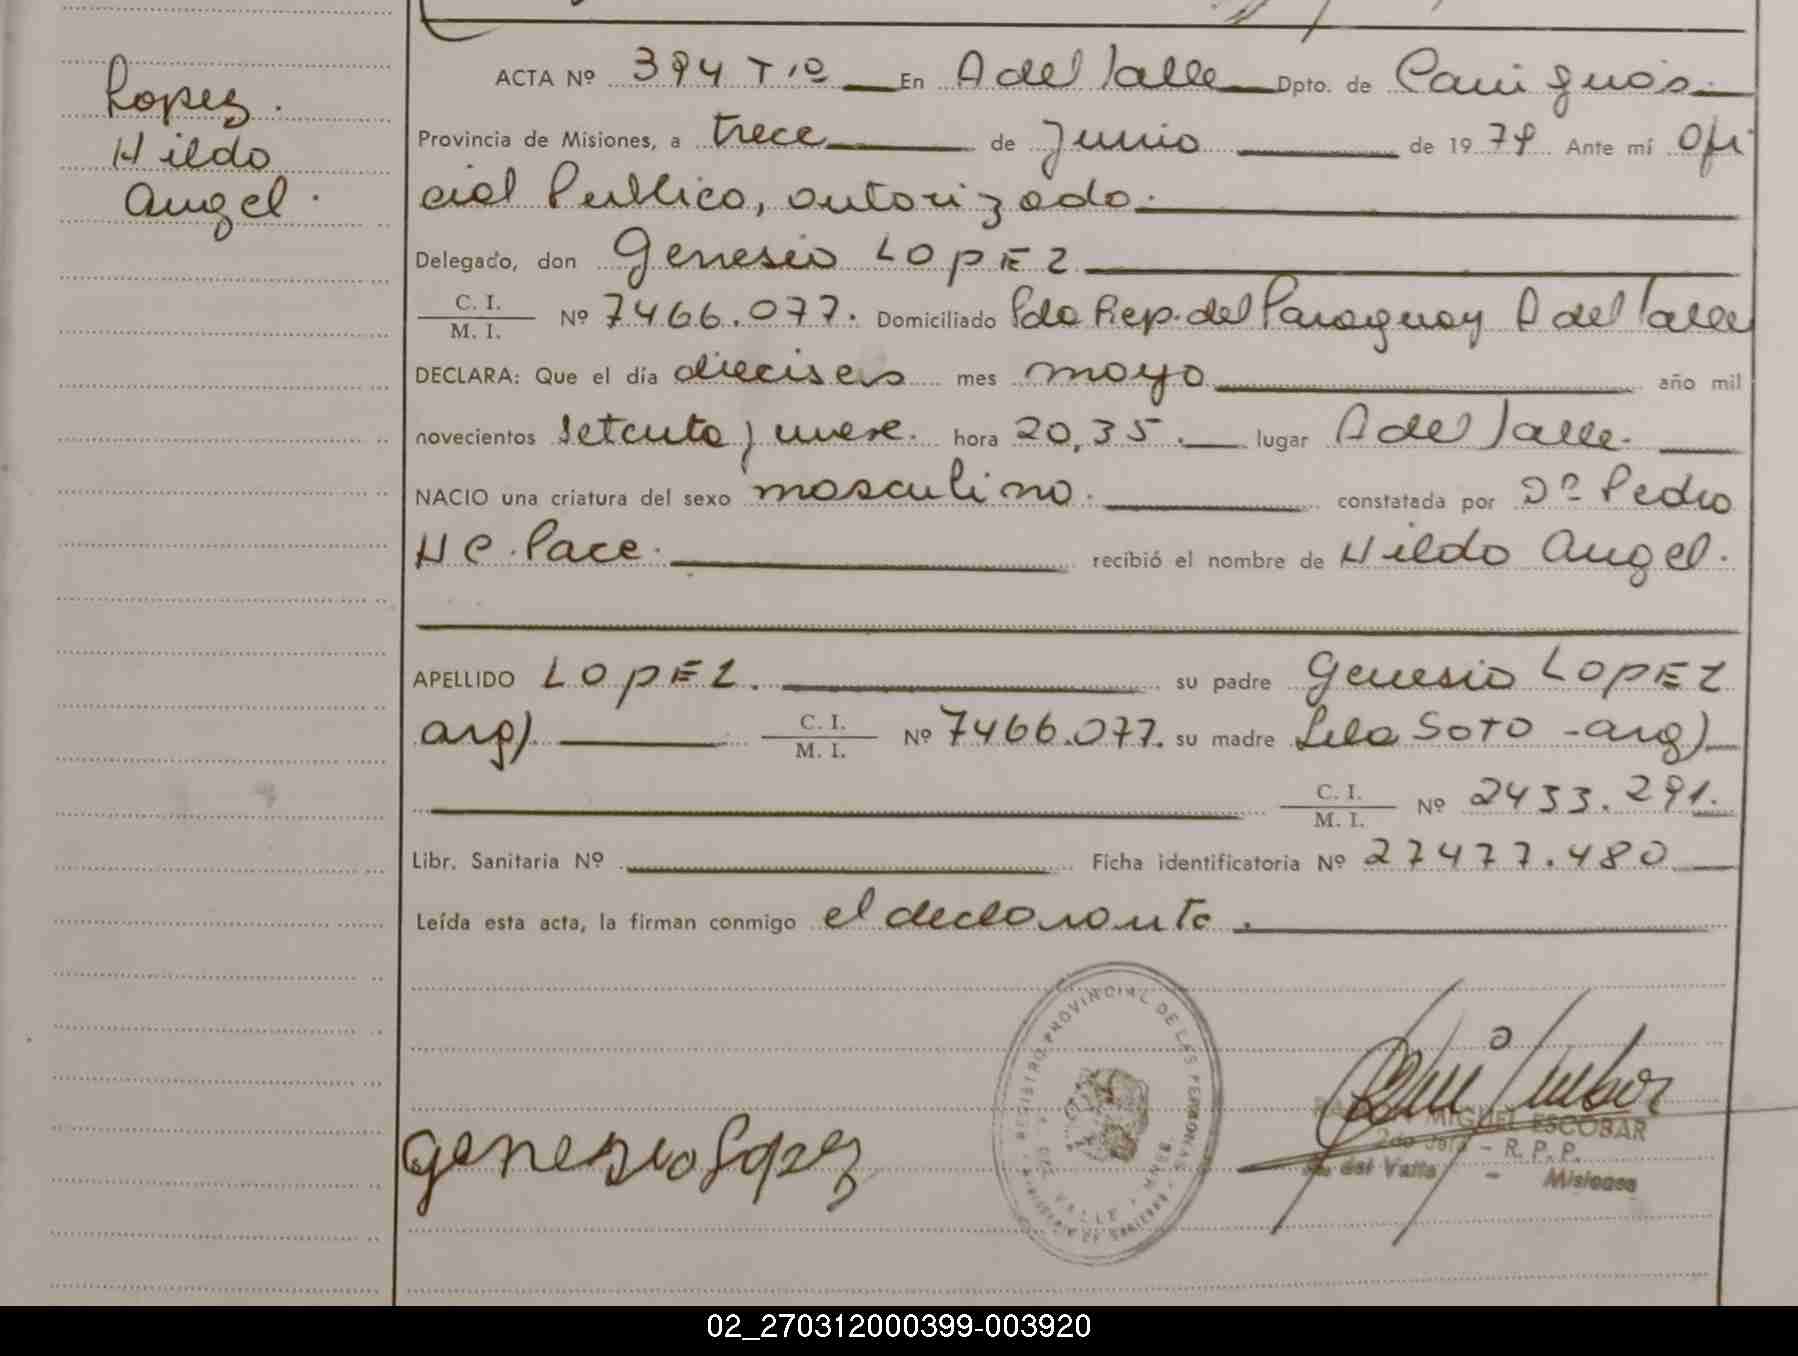 Lopez.
Hildo
Angel.
ACTA Nº 394 Tº En A del Valle Dpto. de Cainguás.
Provincia de Misiones, a trece de Junio de 1979 Ante mí Ofi
cial Publico, autorizado.
Delegado, don Genesio LOPEZ
C. I.
M. I.
Nº 7466.077. Domiciliado Pdo Rep. del Paraguay A del Valle
DECLARA: Que el día dieciseis mes mayo año mil
novecientos setenta y nueve. hora 20,35. lugar A del Valle.
NACIO una criatura del sexo masculino. constatada por Dº Pedro
H C. Pace. recibió el nombre de Hildo Angel.
APELLIDO LOPEZ. su padre Genesio LOPEZ
arg) C. I.
M. I.
Nº 7466.077. su madre Lela SOTO - arg)
C. I.
M. I.
Nº 2433.291.
Libr. Sanitaria Nº Ficha identificatoria Nº 27477.480
Leída esta acta, la firman conmigo el declarante.
REGISTRO PROVINCIAL DE LAS PERSONAS
MINISTERIO DE GOBIERNO
DEL VALLE
genesio Lopez
MIGUEL ESCOBAR
2do Jefe - R. P. P.
del Valle - Misiones
02_270312000399-003920